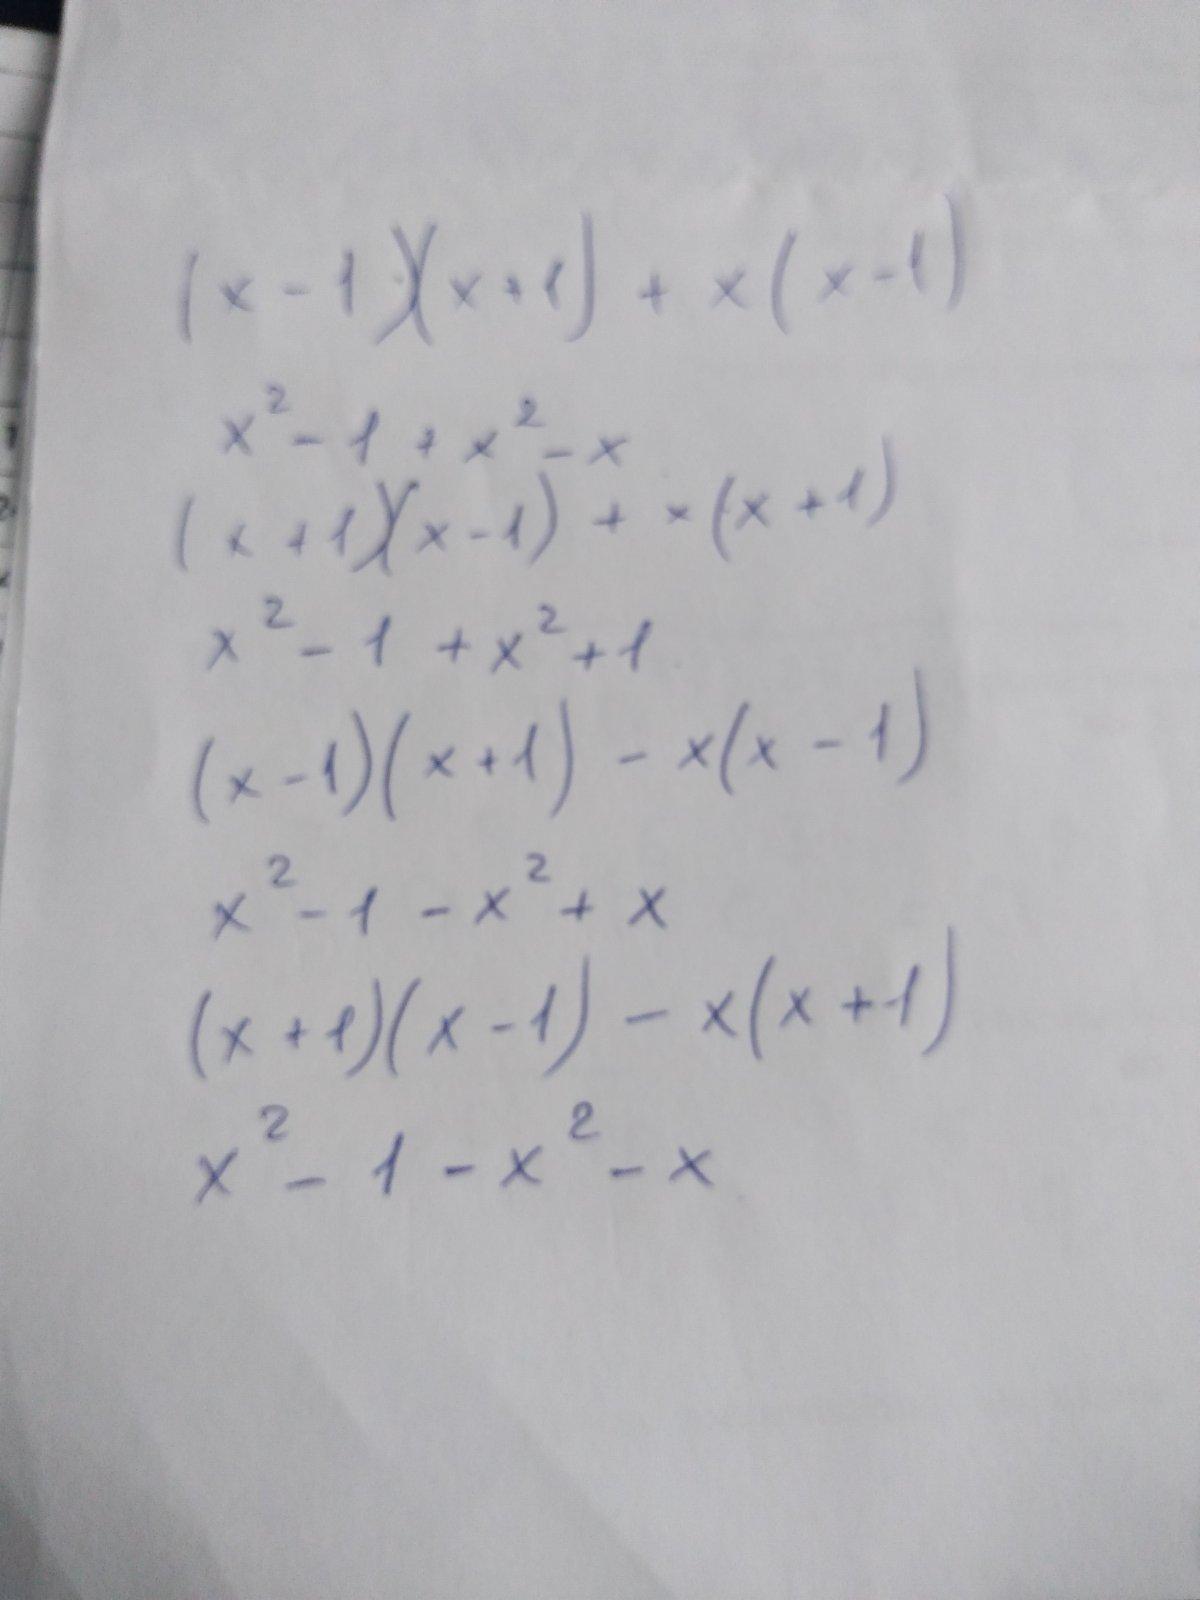 (x - 1)(x + 1) + x(x - 1)
x² - 1 + x² - x
(x + 1)(x - 1) + x(x + 1)
x² - 1 + x² + 1
(x - 1)(x + 1) - x(x - 1)
x² - 1 - x² + x
(x + 1)(x - 1) - x(x + 1)
x² - 1 - x² - x